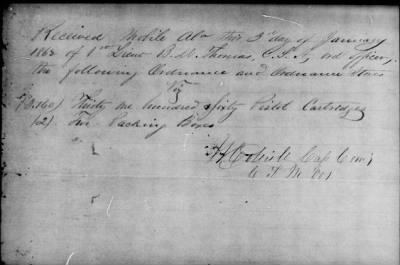 Received Mobile Ala this 3d day of January
1862 of 1st Lieut B. M. Thomas, C.S.A, ord officer,
the following Ordnance and Ordnance Stores
Viz
(3,160) Thirty one hundred & Sixty Pistol Cartridges
(2) Two Packing Boxes
Cap Com'g